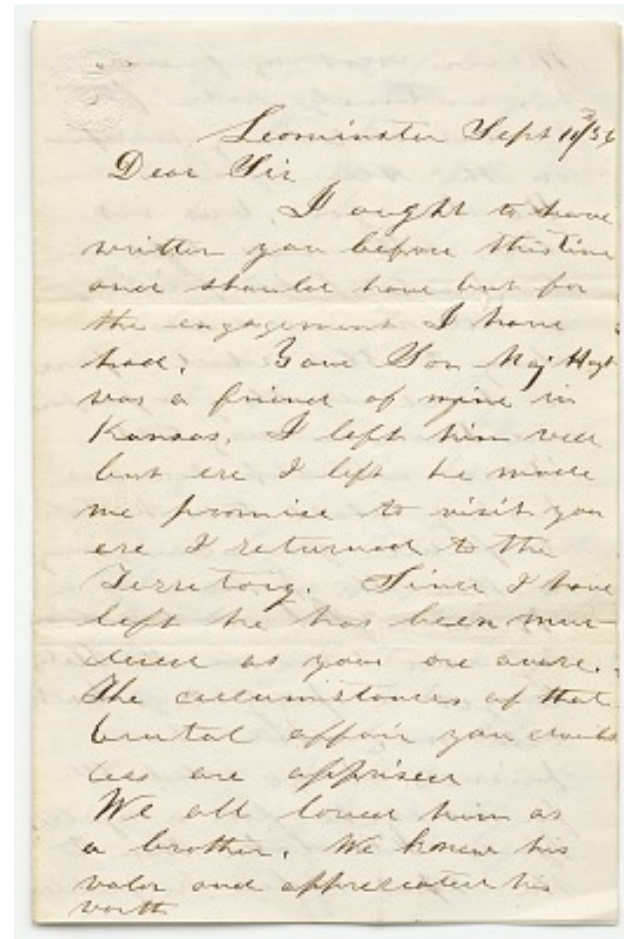 Leominster Sept 10/56
Dear Sir
I ought to have
written you before this time
and should have but for
the engagement I have
had. Your Son Maj Hoyt
was a friend of mine in
Kansas. I left him well
but ere I left he made
me promise to visit you
ere I returned to the
Territory. Since I have
left he has been mur-
dered as you are aware.
The circumstances of that
brutal affair you doubt
less are apprised
We all loved him as
a brother. We honor his
valor and appreciated his
worth